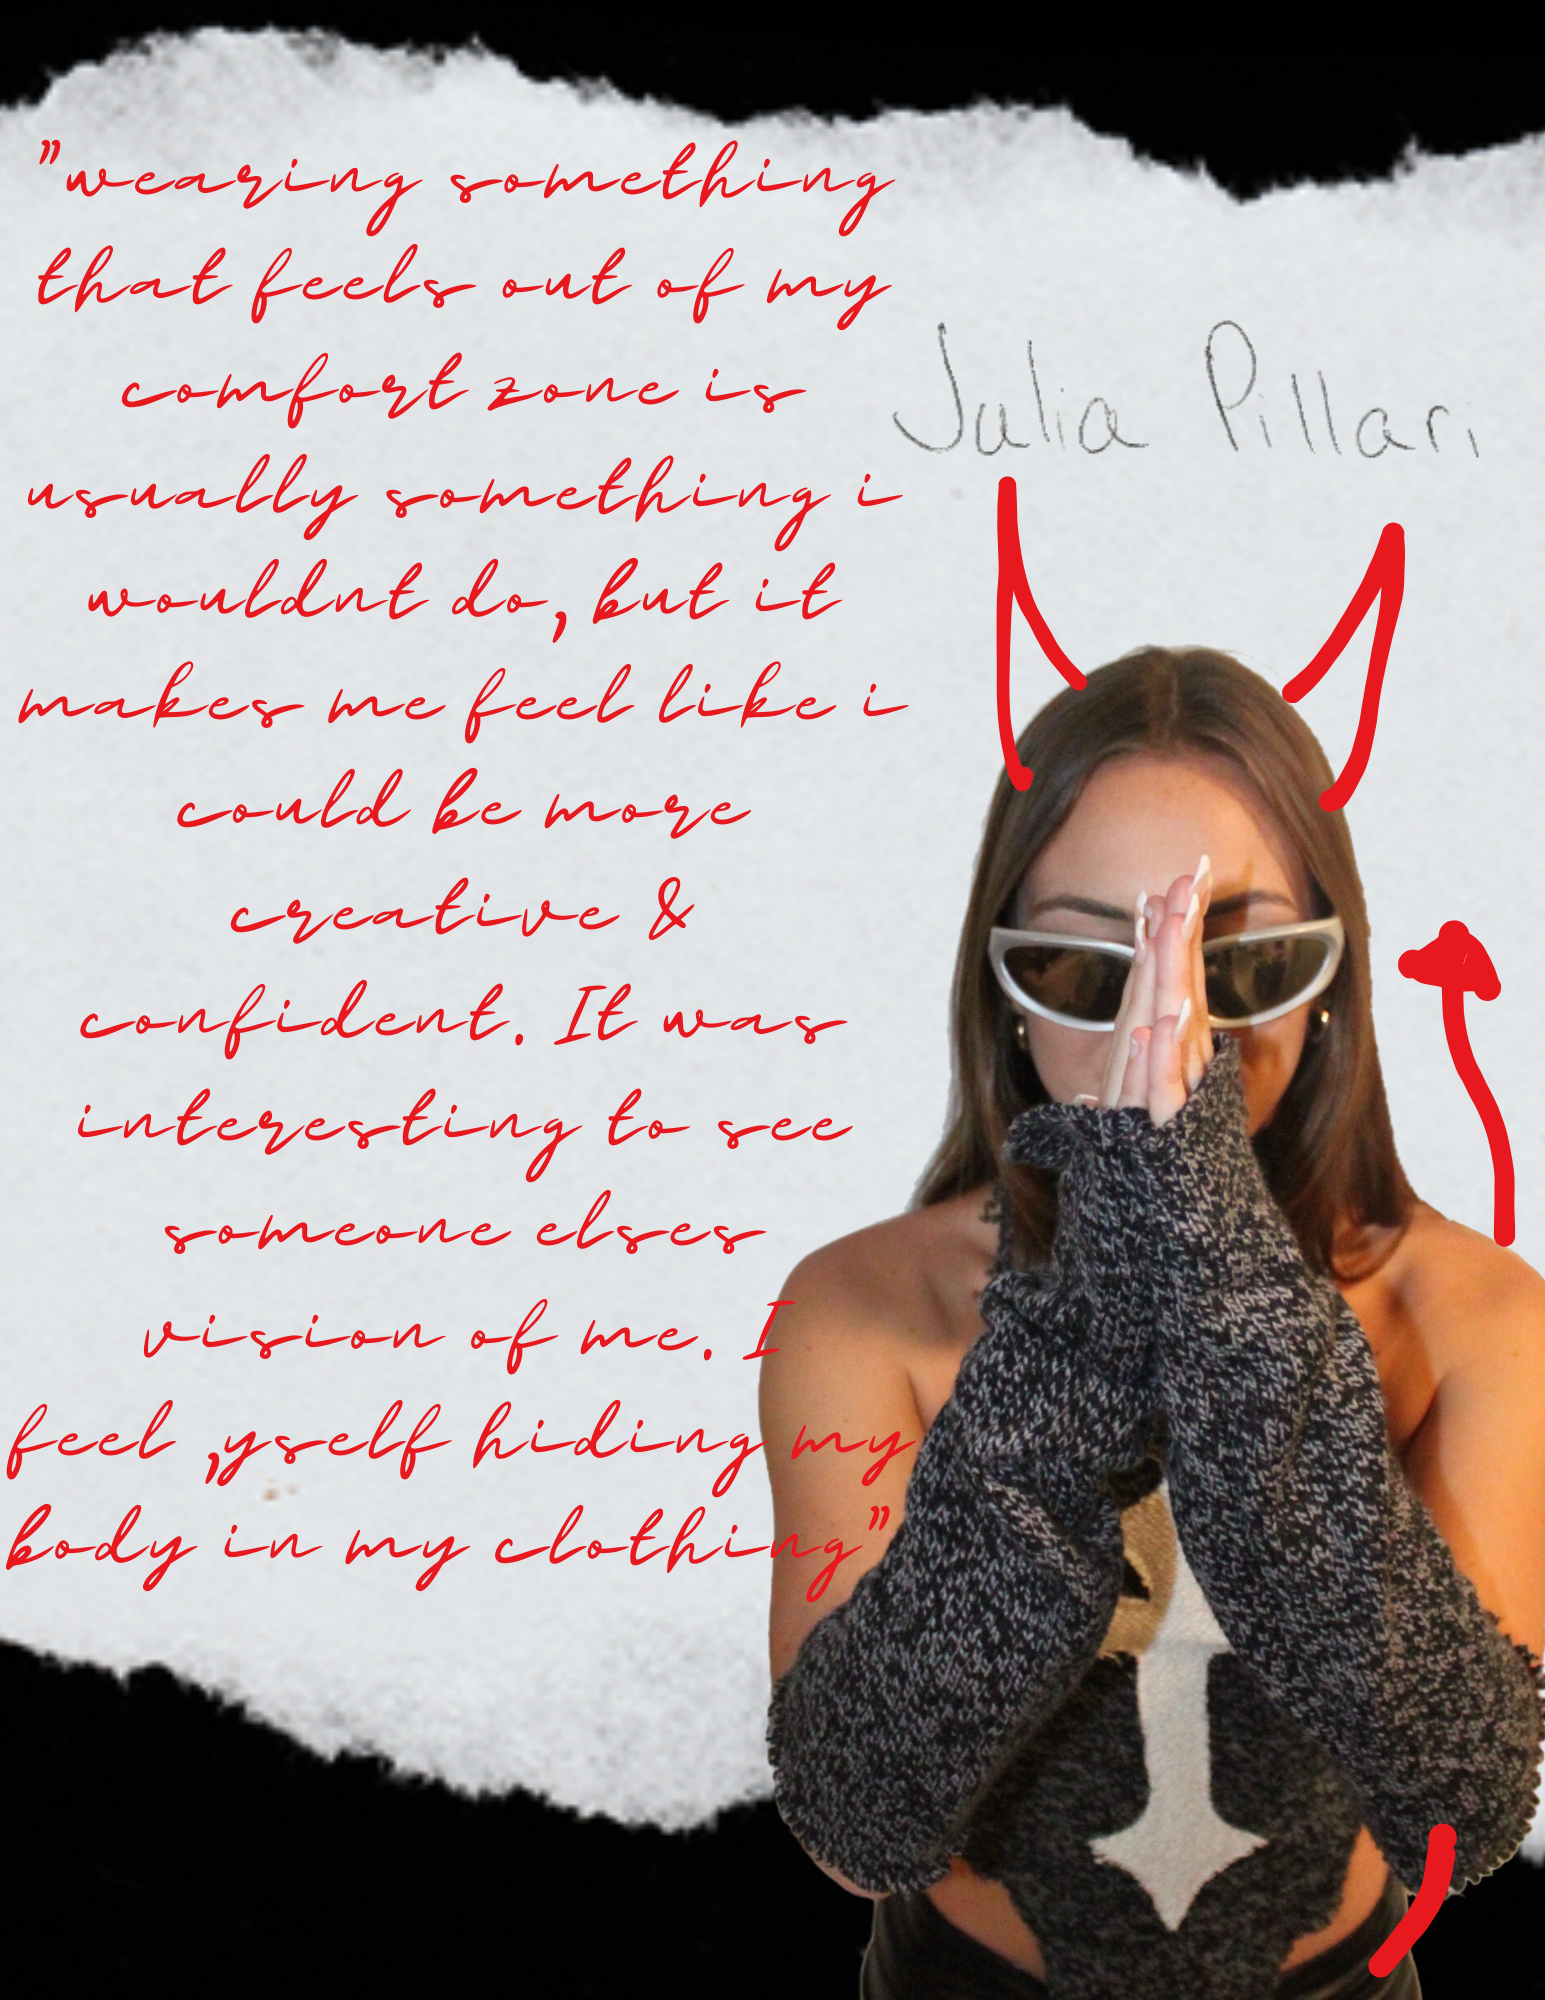 "wearing something
that feels out of my
comfort zone is
usually something i
wouldnt do, but it
makes me feel like i
could be more
creative &
confident. It was
interesting to see
someone elses
vision of me. I
feel ,yself hiding my
body in my clothing"
Julia Pillari